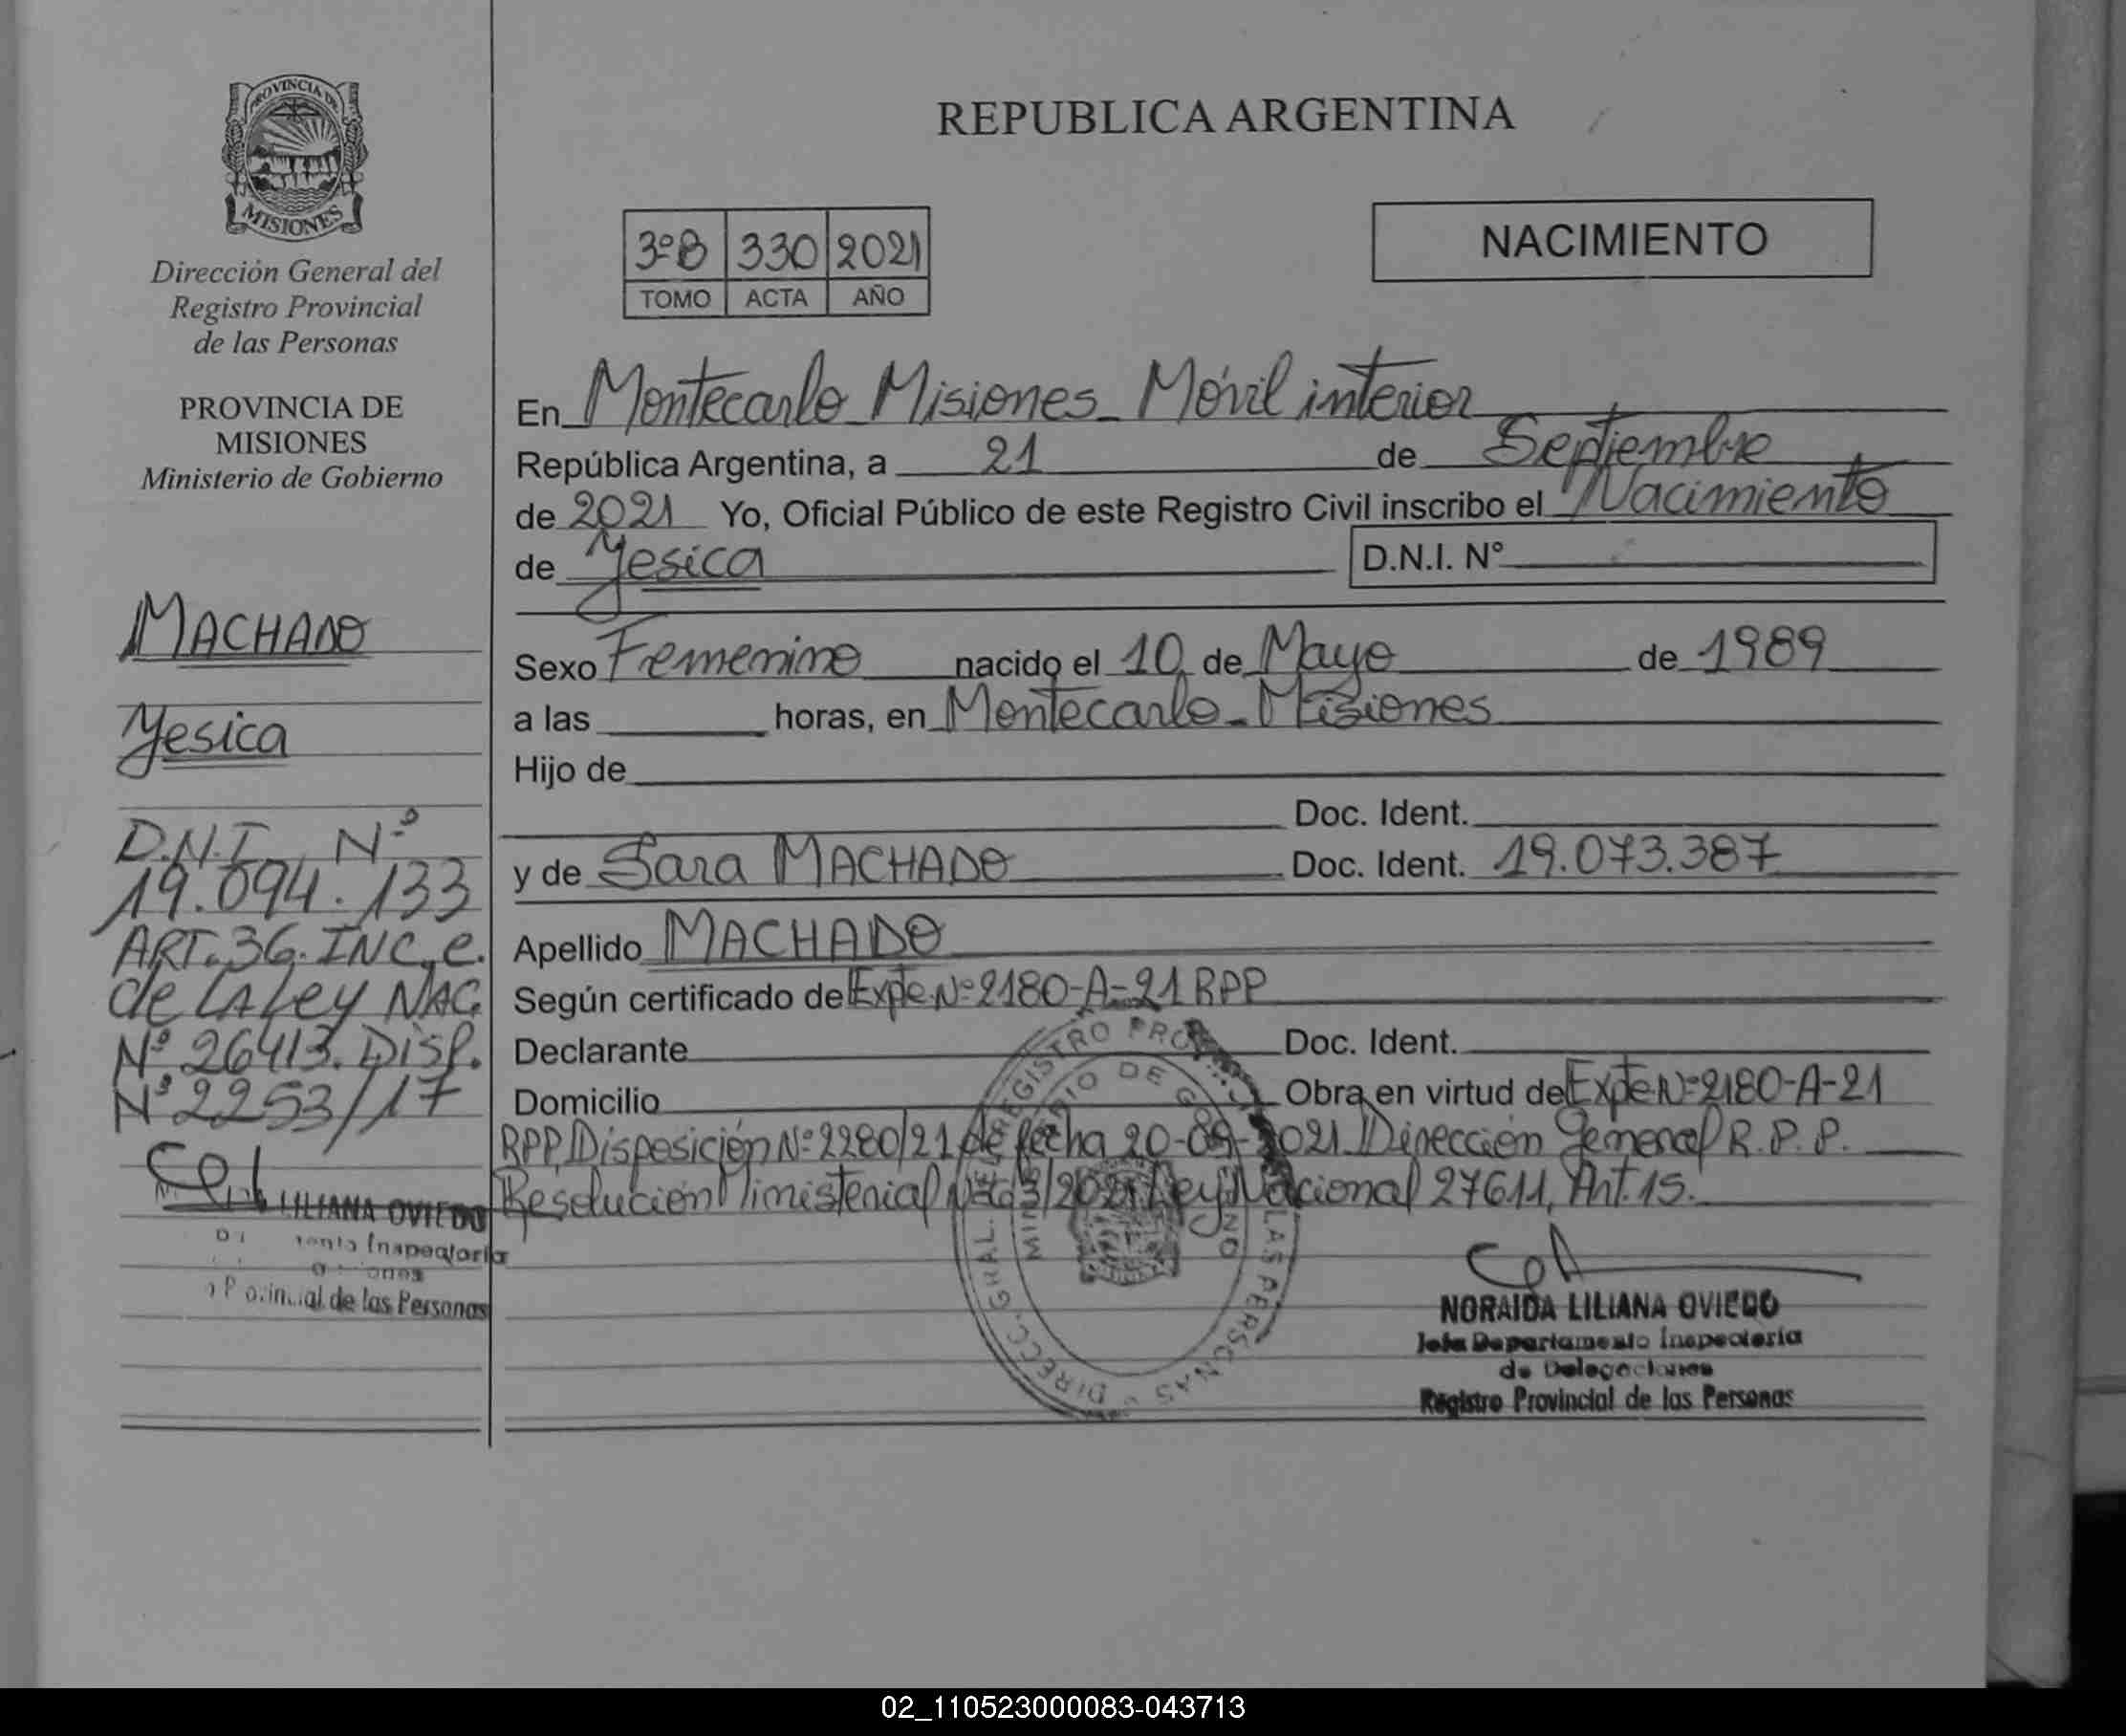 PROVINCIA DE
MISIONES
Dirección General del
Registro Provincial
de las Personas
PROVINCIA DE
MISIONES
Ministerio de Gobierno
MACHADO
Yesica
D.N.I. Nº
19.094.133
ART. 36. INC. e.
de LA Ley NAC.
Nº 26413. DISP.
Nº 2253/17
LILIANA OVIEDO
Inspectoria
de las Personas
REPUBLICA ARGENTINA
3ºB 330 2021
TOMO ACTA AÑO
NACIMIENTO
En Montecarlo Misiones - Móvil interior
República Argentina, a 21 de Septiembre
de 2021 Yo, Oficial Público de este Registro Civil inscribo el Nacimiento
de Yesica D.N.I. Nº
Sexo Femenino nacido el 10 de Mayo de 1989
a las horas, en Montecarlo - Misiones
Hijo de
Doc. Ident.
y de Sara MACHADO Doc. Ident. 19.073.387
Apellido MACHADO
Según certificado de Expte Nº 2180-A-21 RPP
Declarante Doc. Ident.
Domicilio Obra en virtud de Expte Nº 2180-A-21
RPP Disposición Nº 2280/21 de fecha 20-09-2021 Dirección General R.P.P.
Resolución Ministerial Ley Nacional 27611, Art. 15.
NORAIDA LILIANA OVIEDO
Jefa Departamento Inspectoria
de Delegaciones
Registro Provincial de las Personas
DIRECC. GRAL. DEL REGISTRO PROV. DE LAS PERSONAS
MINISTERIO DE GOBIERNO
02_110523000083-043713